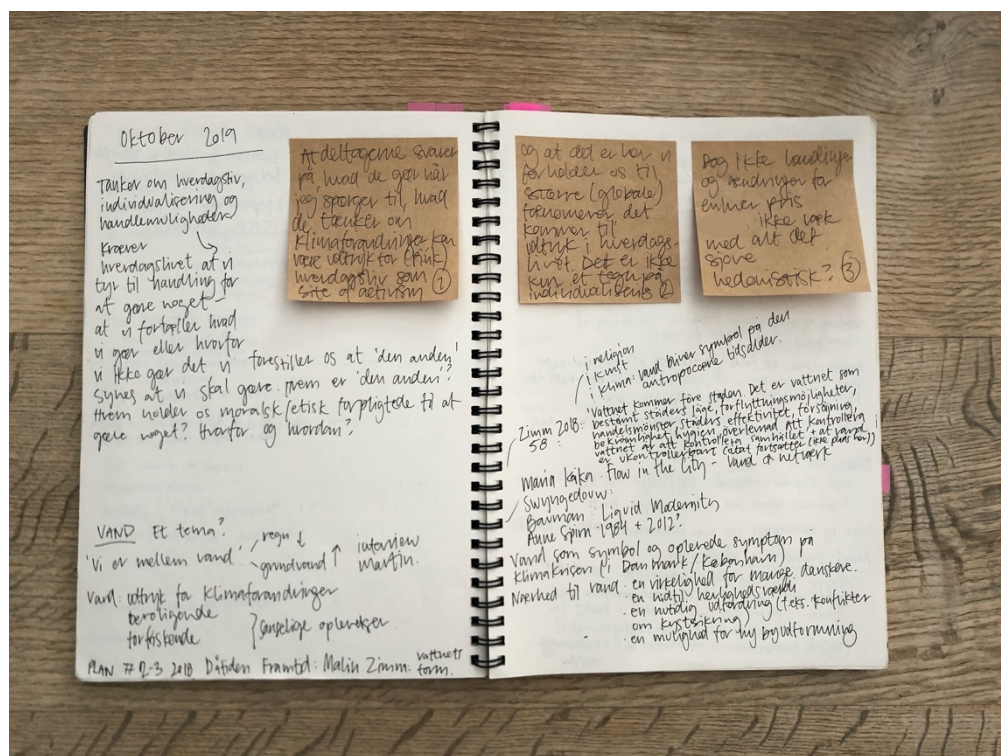 Oktober 2019
Tanker om hverdagsliv,
individualisering og
handlemuligheder
Kræver
hverdagslivet at vi
tyr til handling for
at gøre noget –
at vi fortæller hvad
vi gør eller hvorfor
vi ikke gør det vi forestiller os at 'den anden'
synes at vi skal gøre. Hvem er 'den anden'?
Hvem holder os moralsk/etisk forpligtede til at
gøre noget? Hvorfor og hvordan?
At deltagerne svarer
på, hvad de gør når
jeg spørger til, hvad
de tænker om
klimaforandringer kan
være udtryk for
hverdagsliv som
site of activism 1
VAND Et tema?
'Vi er mellem vand'
regn ↓
grundvand ↑
interview
Martin.
Vand: udtryk for klimaforandringer
beroligende
forfriskende
sanselige oplevelser
PLAN # 2-3 2018 Dåtiden Framtid: Malin Zimm: vattnets
form.
og at det er her vi
forholder os til
større (globale)
fænomener det
kommer til
udtryk i hverdags-
livet. Det er ikke
kun et tegn på
individualisering 2
Dog ikke handlinger
og ændringer for
enhver pris
ikke væk
med alt det
sjove
hedonistisk? 3
i religion
i kunst
i klima: vand bliver symbol på den
antropocæne tidsalder.
Zimm 2018:
58
'Vattnet kommer före staden. Det er vattnet som
bestämt städers läge, förflyttningsmöjligheter,
handelsmönster, städers effektivitet, försörjning,
bekvämlighet, hygien, överlevnad att kontrollera
vattnet är att kontrollera samhället' + at vand
er ukontrollerbart (citat fortsætter (ikke plads her))
Maria Kaika. Flow in the City – Vand & netværk
Swyngedouw:
Bauman: Liquid Modernity
Anne Spirn 1984 + 2012?
Vand som symbol og oplevede symptom på
klimakrisen (i Danmark/København)
Nærhed til vand: en virkelighed for mange danskere.
· en nutidig herlighedsværdi
· en nutidig udfordring (f.eks. konflikter
om kystsikring)
· en mulighed for ny byudformning